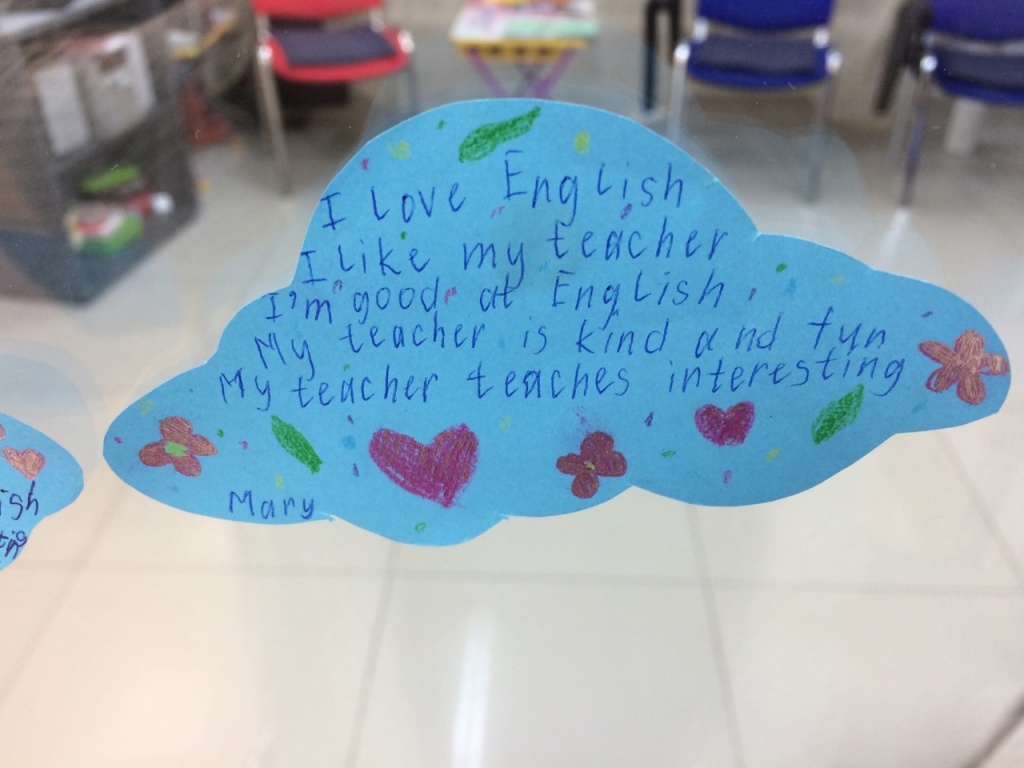 I love English
I like my teacher
I'm good at English.
My teacher is kind and fun
My teacher teaches interesting
Mary